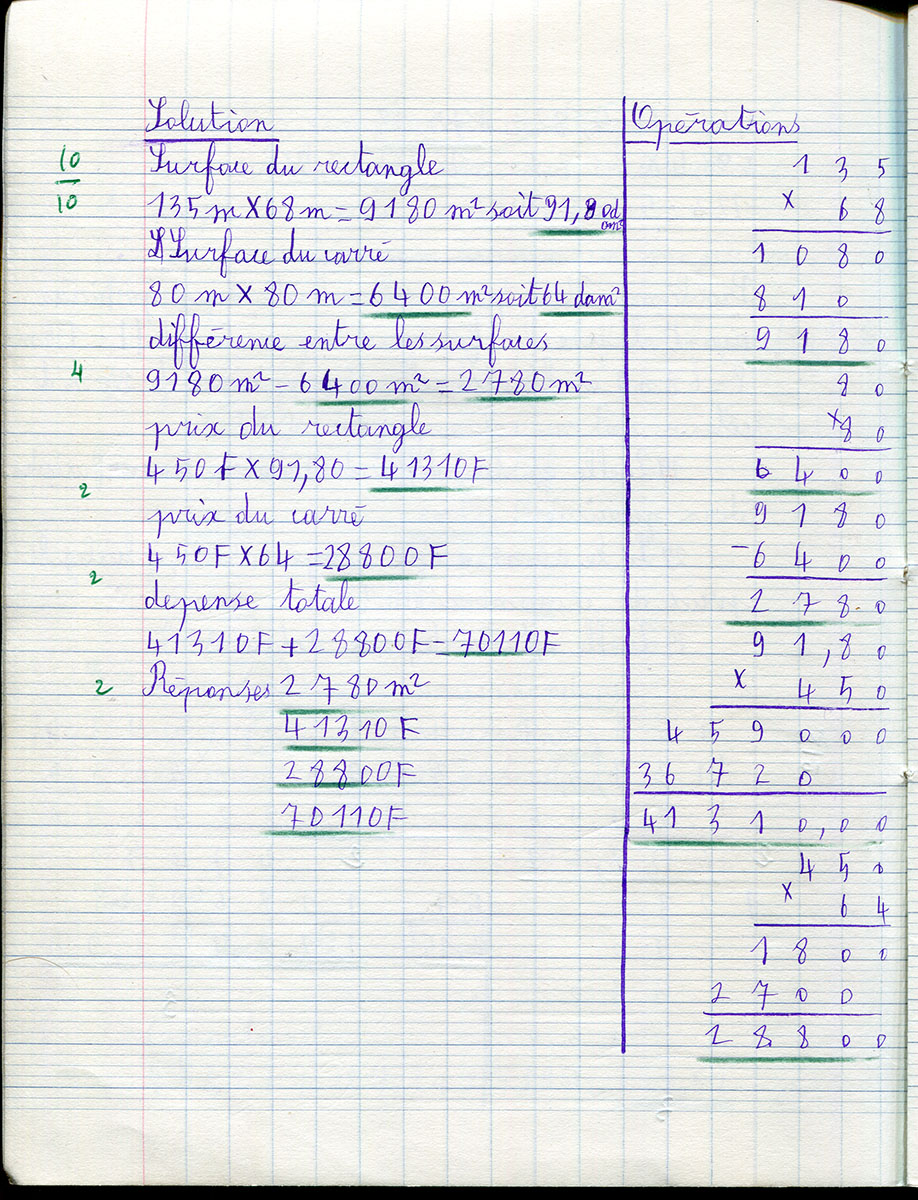 Solution
10
10
Surface du rectangle
135 m X 68 m = 9180 m² soit 91,80 dam²
Surface du carré
80 m X 80 m = 6400 m² soit 64 dam²
différence entre les surfaces
4
9180 m² - 6400 m² = 2780 m²
prix du rectangle
450 F X 91,80 = 41310 F
2
prix du carré
450 F X 64 = 28800 F
2
depense totale
41310 F + 28800 F = 70110 F
2
Réponses 2780 m²
41310 F
28800 F
70110 F
Opérations
1 3 5
x 6 8
1 0 8 0
8 1 0
9 1 8 0
8 0
x 8 0
6 4 0 0
9 1 8 0
- 6 4 0 0
2 7 8 0
9 1,8 0
x 4 5 0
4 5 9 0 0 0
3 6 7 2 0
4 1 3 1 0,0 0
4 5 0
x 6 4
1 8 0 0
2 7 0 0
2 8 8 0 0